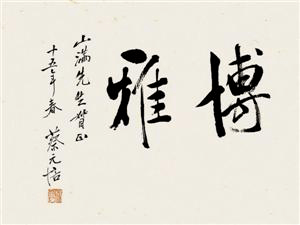 博雅
山滿先生正
十五年春 蔡元培